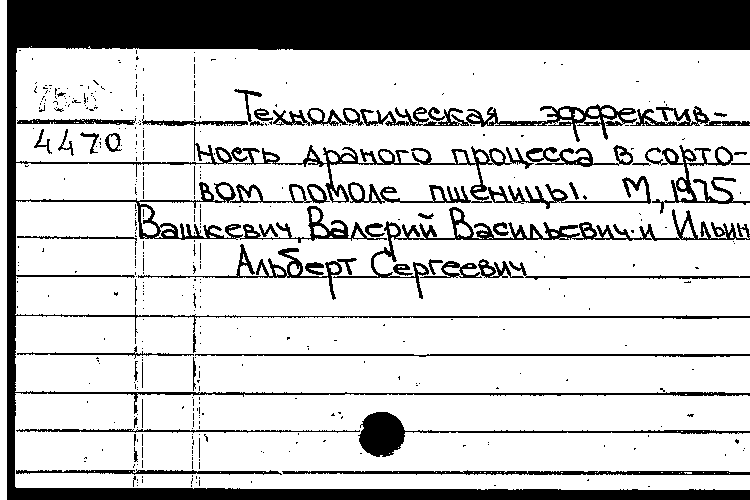 75-6
Технологическая эффектив-
4470
ность драного процесса в сорто-
вом помоле пшеницы. М., 1975
Вашкевич, Валерий Васильевич и Ильин
Альберт Сергеевич